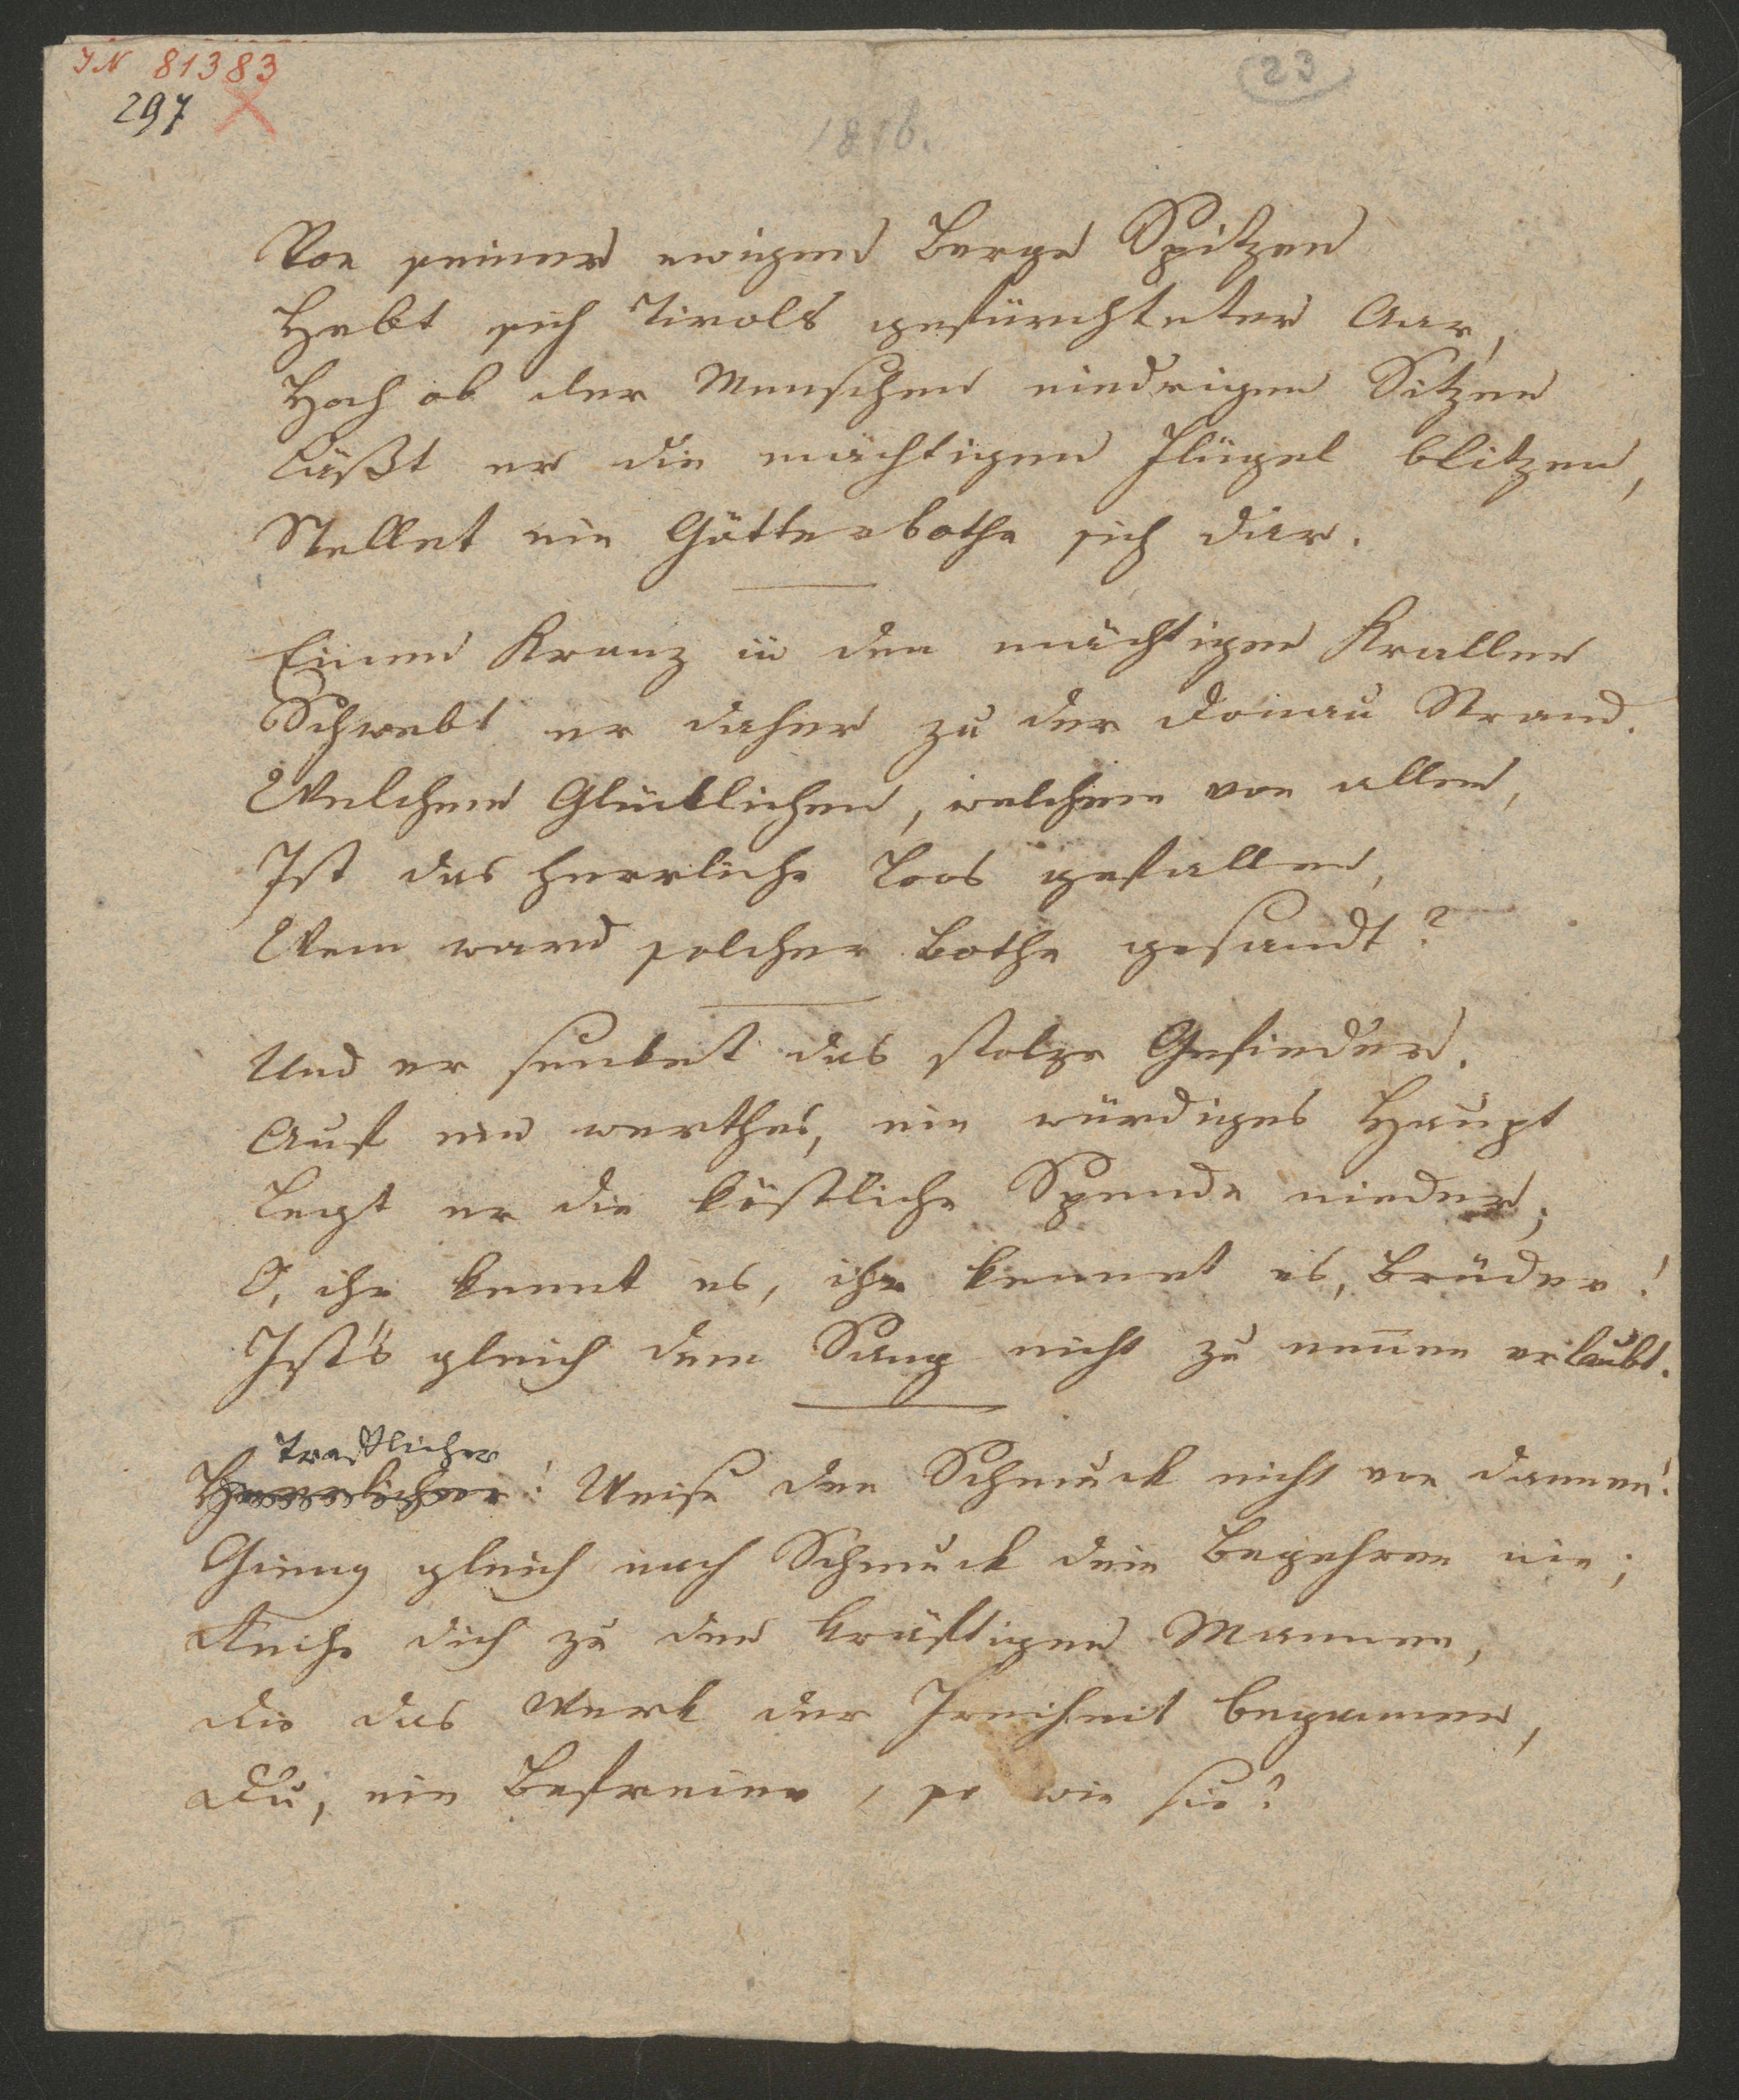 IN 81383
297
23
1816.
Von seiner ewigen Berge Spitzen
Hebt sich Tirols gefürchteter Aar,
Hoch ob der Menschen niedrigen Sitzen
Läßt er die mächtigen Flügel blitzen,
Stellet ein Götterbothe sich dar.
Einen Kranz in den mächtigen Krallen
Schwebt er daher zu der Donau Strand.
Welchem Glücklichen, welchem von allen,
Ist das herrliche Loos gefallen,
Wem ward solcher Bothe gesandt?
Und er senket das stolze Gefieder.
Auf ein werthes, ein würdiges Haupt
Legt er die köstliche Spende nieder;
O, ihr kennt es, ihr kennet es, Brüder!
Ist's gleich dem Sang nicht zu nennen erlaubt.
Trefflicher
Herrlicher! Weise den Schmuck nicht von dannen!
Gieng gleich nach Schmuck dein Begehren nie;
Reihe dich zu den kräftigen Mannen,
Die das Werk der Freiheit begannen,
Du, ein Befreier, so wie sie!